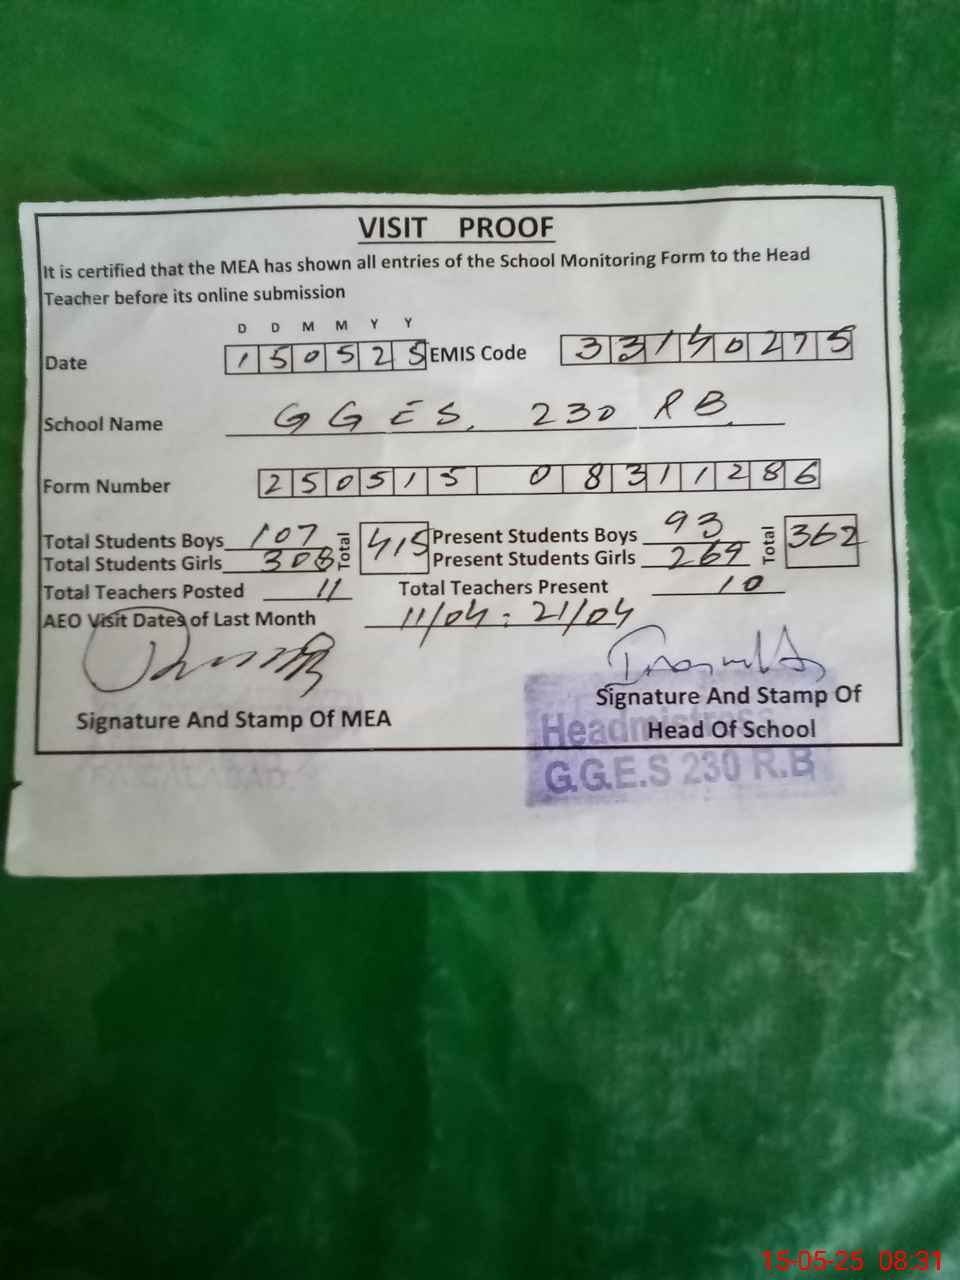 VISIT PROOF
It is certified that the MEA has shown all entries of the School Monitoring Form to the Head
Teacher before its online submission
D D M M Y Y
Date 1 5 0 5 2 5 EMIS Code 3 3 1 4 0 2 7 5
School Name G G E S, 230 R B.
Form Number 2 5 0 5 1 5 0 8 3 1 1 2 8 6
Total Students Boys 107 Total 415 Present Students Boys 93 Total 362
Total Students Girls 308 Present Students Girls 269
Total Teachers Posted 11 Total Teachers Present 10
AEO Visit Dates of Last Month 11/04 : 21/04
Signature And Stamp Of MEA
Signature And Stamp Of
Head Of School
Headmistress
G.G.E.S 230 R.B
FAISALABAD.
15-05-25 08:31